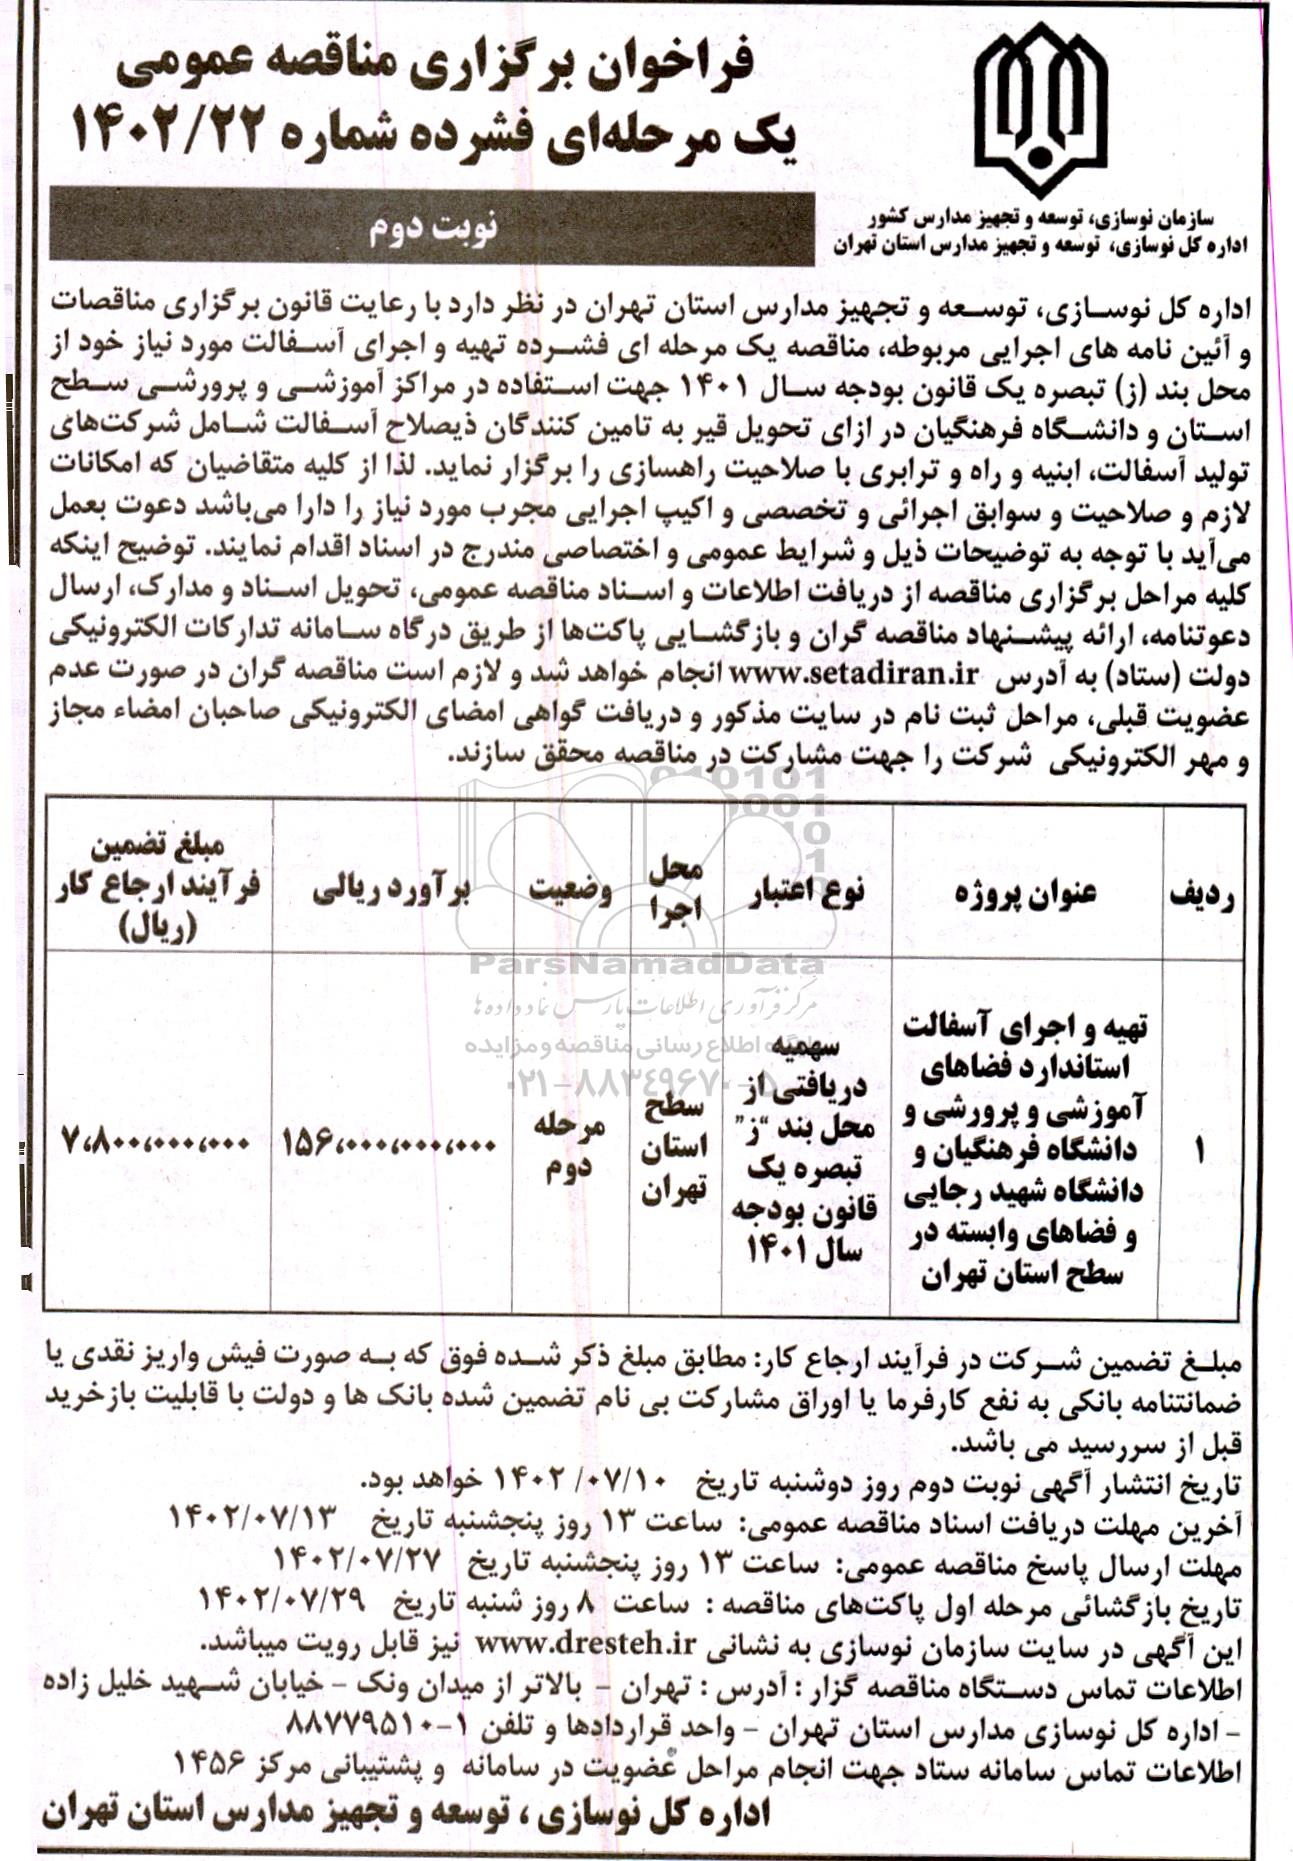 فراخوان برگزاری مناقصه عمومی
یک مرحله‌ای فشرده شماره ۱۴۰۲/۲۲
نوبت دوم
سازمان نوسازی، توسعه و تجهیز مدارس کشور
اداره کل نوسازی، توسعه و تجهیز مدارس استان تهران
اداره کل نوسازی، توسعه و تجهیز مدارس استان تهران در نظر دارد با رعایت قانون برگزاری مناقصات
و آئین نامه های اجرایی مربوطه، مناقصه یک مرحله ای فشرده تهیه و اجرای آسفالت مورد نیاز خود از
محل بند (ز) تبصره یک قانون بودجه سال ۱۴۰۱ جهت استفاده در مراکز آموزشی و پرورشی سطح
استان و دانشگاه فرهنگیان در ازای تحویل قیر به تامین کنندگان ذیصلاح آسفالت شامل شرکت‌های
تولید آسفالت، ابنیه و راه و ترابری با صلاحیت راهسازی را برگزار نماید. لذا از کلیه متقاضیان که امکانات
لازم و صلاحیت و سوابق اجرائی و تخصصی و اکیپ اجرایی مجرب مورد نیاز را دارا می‌باشد دعوت بعمل
می‌آید با توجه به توضیحات ذیل و شرایط عمومی و اختصاصی مندرج در اسناد اقدام نمایند. توضیح اینکه
کلیه مراحل برگزاری مناقصه از دریافت اطلاعات و اسناد مناقصه عمومی، تحویل اسناد و مدارک، ارسال
دعوتنامه، ارائه پیشنهاد مناقصه گران و بازگشایی پاکت‌ها از طریق درگاه سامانه تدارکات الکترونیکی
دولت (ستاد) به آدرس www.setadiran.ir انجام خواهد شد و لازم است مناقصه گران در صورت عدم
عضویت قبلی، مراحل ثبت نام در سایت مذکور و دریافت گواهی امضای الکترونیکی صاحبان امضاء مجاز
و مهر الکترونیکی شرکت را جهت مشارکت در مناقصه محقق سازند.
ردیف
عنوان پروژه
نوع اعتبار
محل
اجرا
وضعیت
برآورد ریالی
مبلغ تضمین
فرآیند ارجاع کار
(ریال)
۱
تهیه و اجرای آسفالت
استاندارد فضاهای
آموزشی و پرورشی و
دانشگاه فرهنگیان و
دانشگاه شهید رجایی
و فضاهای وابسته در
سطح استان تهران
سهمیه
دریافتی از
محل بند "ز"
تبصره یک
قانون بودجه
سال ۱۴۰۱
سطح
استان
تهران
مرحله
دوم
۱۵۶،۰۰۰،۰۰۰،۰۰۰
۷،۸۰۰،۰۰۰،۰۰۰
ParsNamadData
مرکز فرآوری اطلاعات پارس نماد داده ها
پایگاه اطلاع رسانی مناقصه و مزایده
۰۲۱-۸۸۳۴۹۶۷۰-۵
مبلغ تضمین شرکت در فرآیند ارجاع کار: مطابق مبلغ ذکر شده فوق که به صورت فیش واریز نقدی یا
ضمانتنامه بانکی به نفع کارفرما یا اوراق مشارکت بی نام تضمین شده بانک ها و دولت با قابلیت بازخرید
قبل از سررسید می باشد.
تاریخ انتشار آگهی نوبت دوم روز دوشنبه تاریخ ۱۴۰۲/۰۷/۱۰ خواهد بود.
آخرین مهلت دریافت اسناد مناقصه عمومی: ساعت ۱۳ روز پنجشنبه تاریخ ۱۴۰۲/۰۷/۱۳
مهلت ارسال پاسخ مناقصه عمومی: ساعت ۱۳ روز پنجشنبه تاریخ ۱۴۰۲/۰۷/۲۷
تاریخ بازگشائی مرحله اول پاکت‌های مناقصه : ساعت ۸ روز شنبه تاریخ ۱۴۰۲/۰۷/۲۹
این آگهی در سایت سازمان نوسازی به نشانی www.dresteh.ir نیز قابل رویت میباشد.
اطلاعات تماس دستگاه مناقصه گزار : آدرس : تهران - بالاتر از میدان ونک - خیابان شهید خلیل زاده
- اداره کل نوسازی مدارس استان تهران - واحد قراردادها و تلفن ۱-۸۸۷۷۹۵۱۰
اطلاعات تماس سامانه ستاد جهت انجام مراحل عضویت در سامانه و پشتیبانی مرکز ۱۴۵۶
اداره کل نوسازی ، توسعه و تجهیز مدارس استان تهران